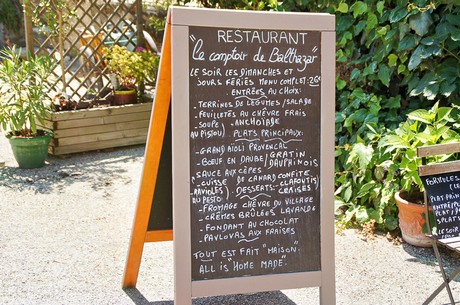 RESTAURANT
"le comptoir de Balthazar"
LE SOIR LES DIMANCHES ET
JOURS FÉRIÉS MENU COMPLET: 26€
ENTRÉES AU CHOIX
- TERRINES DE LÉGUMES/SALADE
- FEUILLETÉ CHÈVRE FRAIS
SOUPE AU PISTOU ANCHOÏADE
PLATS PRINCIPAUX
- GRAND AÏOLI PROVENÇALE
- BŒUF EN DAUBE/GRATIN DAUPHINOIS
SAUCE AUX CÈPES
- CUISSE DE CANARD CONFITE
- RAVIOLES AU PESTO
- DESSERTS - CLAFOUTIS CERISES
- FROMAGE CHÈVRE DU VILLAGE
- CRÈMES BRÛLÉES LAVANDE
- FONDANT AU CHOCOLAT
- PAVLOVAS AUX FRAISES
TOUT EST FAIT "MAISON"
ALL IS "HOME MADE".
PLAT
ENTRÉE
PLAT